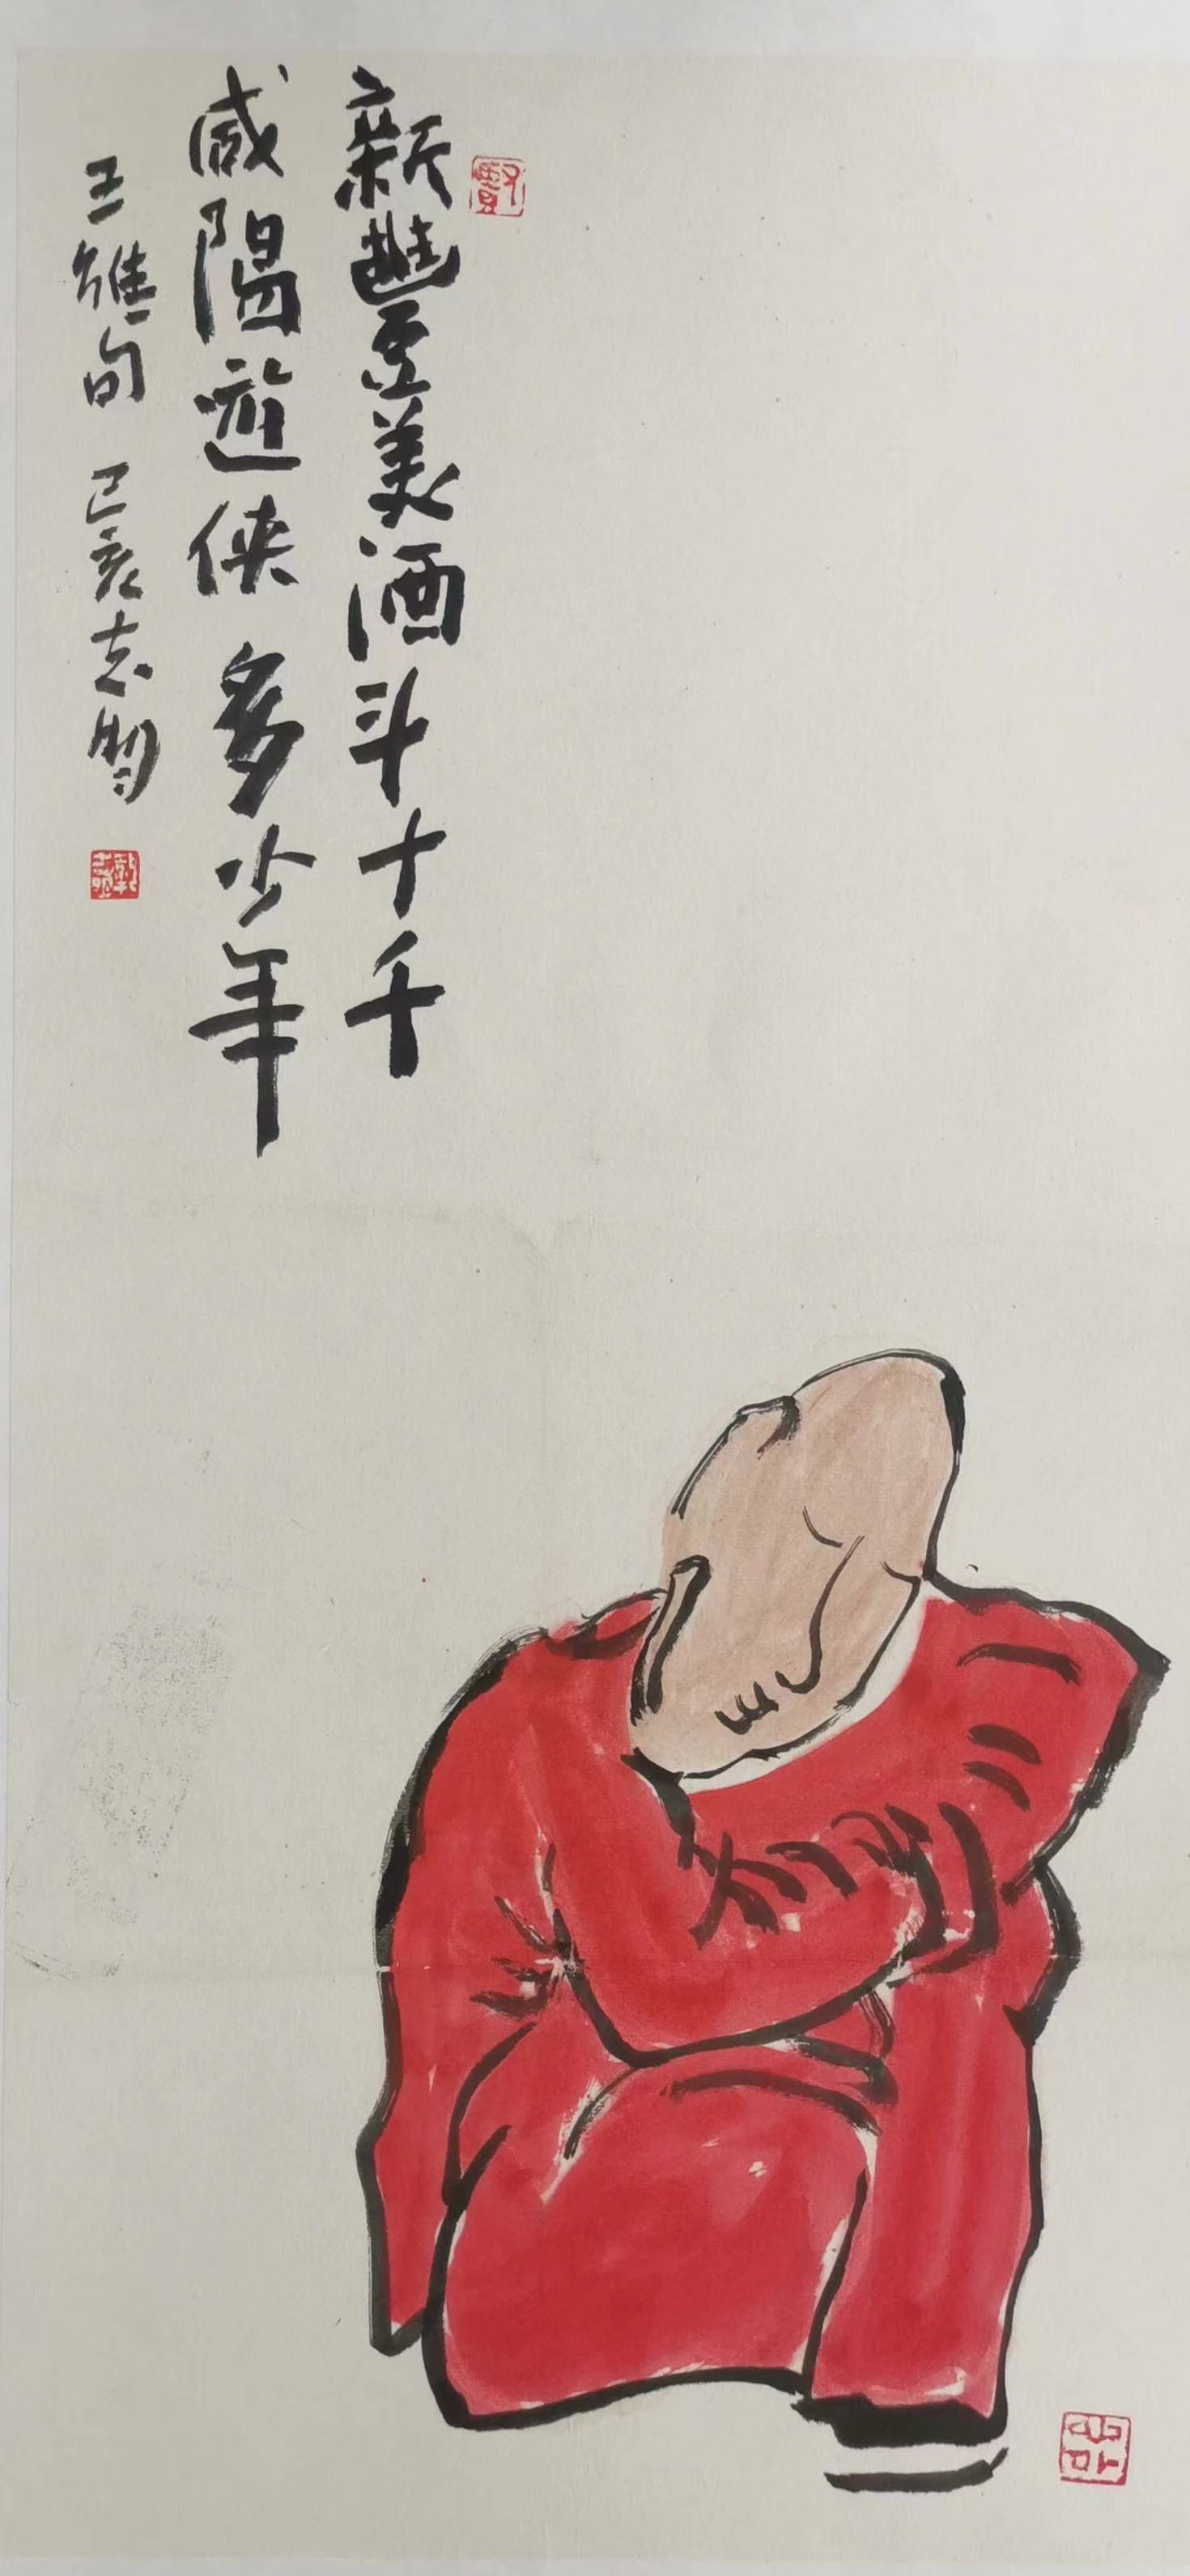 新豐美酒斗十千
咸陽遊俠多少年
王維句 己亥志明